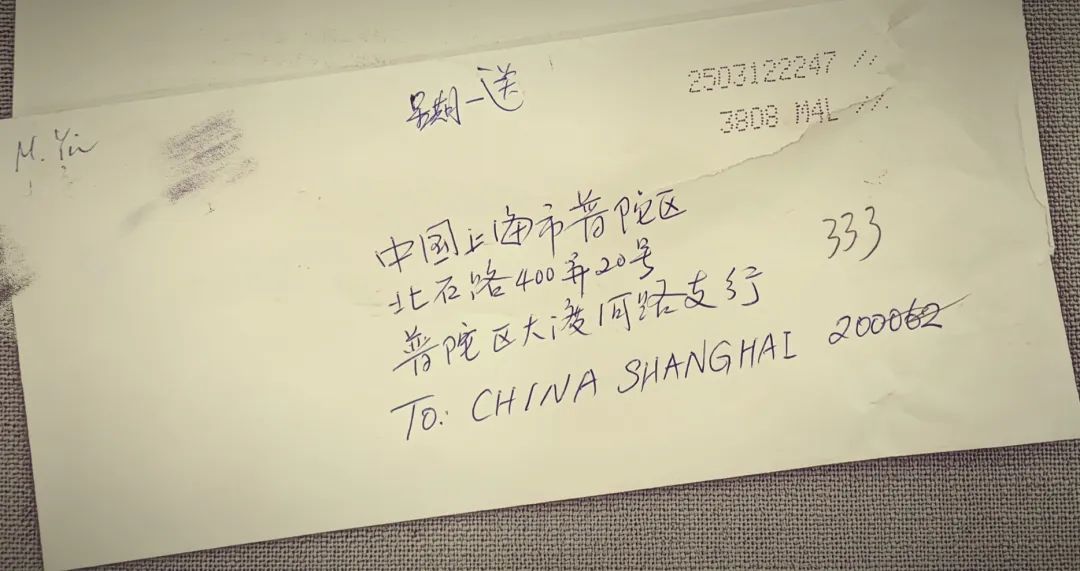 星期一送
2503122247 //
3808 M4L //
M. Yin
中国上海市普陀区
北石路400弄20号
333
普陀区大渡河路支行
To: CHINA SHANGHAI 200062